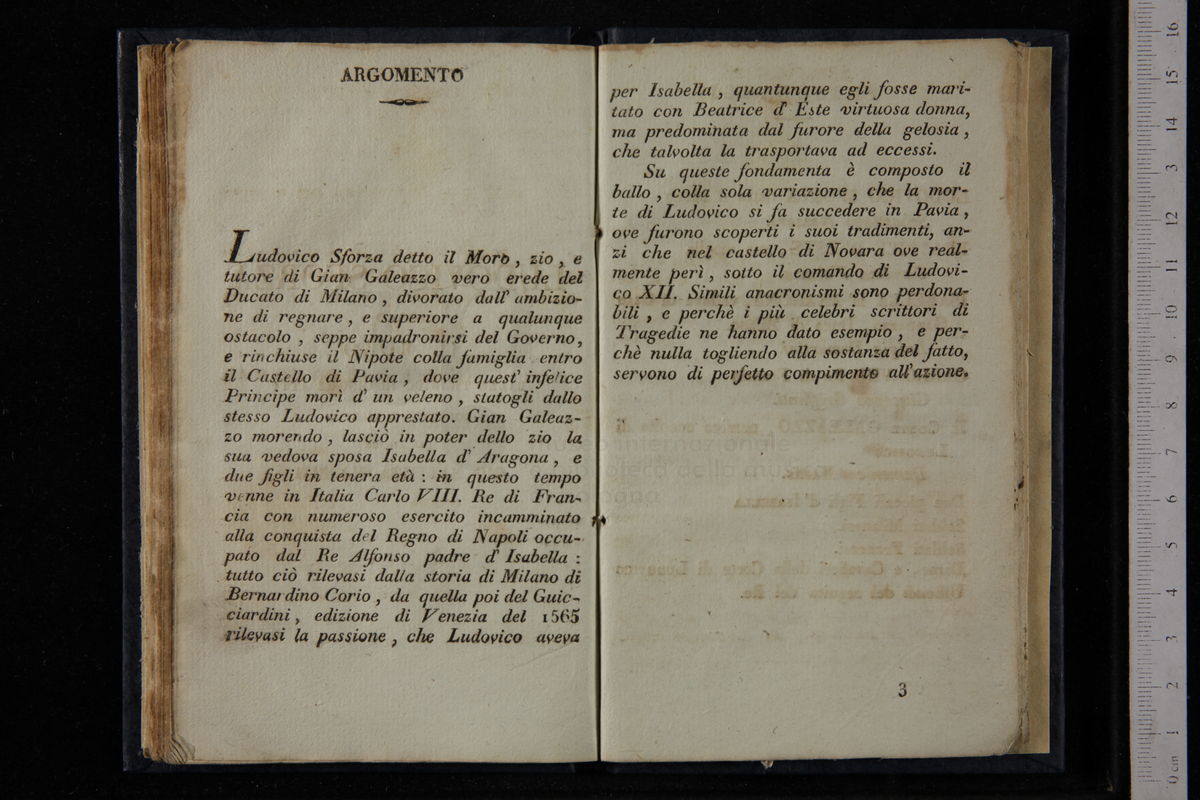 ARGOMENTO
Ludovico Sforza detto il Moro, zio, e
tutore di Gian Galeazzo vero erede del
Ducato di Milano, divorato dall' ambizio-
ne di regnare, e superiore a qualunque
ostacolo, seppe impadronirsi del Governo,
e rinchiuse il Nipote colla famiglia entro
il Castello di Pavia, dove quest' infelice
Principe morì d' un veleno, statogli dallo
stesso Ludovico apprestato. Gian Galeaz-
zo morendo, lasciò in poter dello zio la
sua vedova sposa Isabella d' Aragona, e
due figli in tenera età: in questo tempo
venne in Italia Carlo VIII. Re di Fran-
cia con numeroso esercito incamminato
alla conquista del Regno di Napoli occu-
pato dal Re Alfonso padre d' Isabella:
tutto ciò rilevasi dalla storia di Milano di
Bernardino Corio, da quella poi del Guic-
ciardini, edizione di Venezia del 1565
rilevasi la passione, che Ludovico aveva
per Isabella, quantunque egli fosse mari-
tato con Beatrice d' Este virtuosa donna,
ma predominata dal furore della gelosia,
che talvolta la trasportava ad eccessi.
Su queste fondamenta è composto il
ballo, colla sola variazione, che la mor-
te di Ludovico si fa succedere in Pavia,
ove furono scoperti i suoi tradimenti, an-
zi che nel castello di Novara ove real-
mente perì, sotto il comando di Ludovi-
co XII. Simili anacronismi sono perdona-
bili, e perchè i più celebri scrittori di
Tragedie ne hanno dato esempio, e per-
chè nulla togliendo alla sostanza del fatto,
servono di perfetto compimento all' azione.
3
16
15
14
13
12
11
10
9
8
7
6
5
4
3
2
1
0 cm